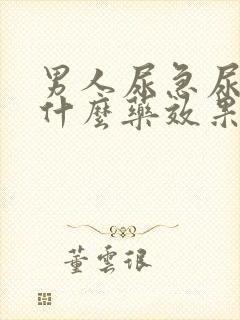 男人尿急尿
什麼藥效果
董雲很